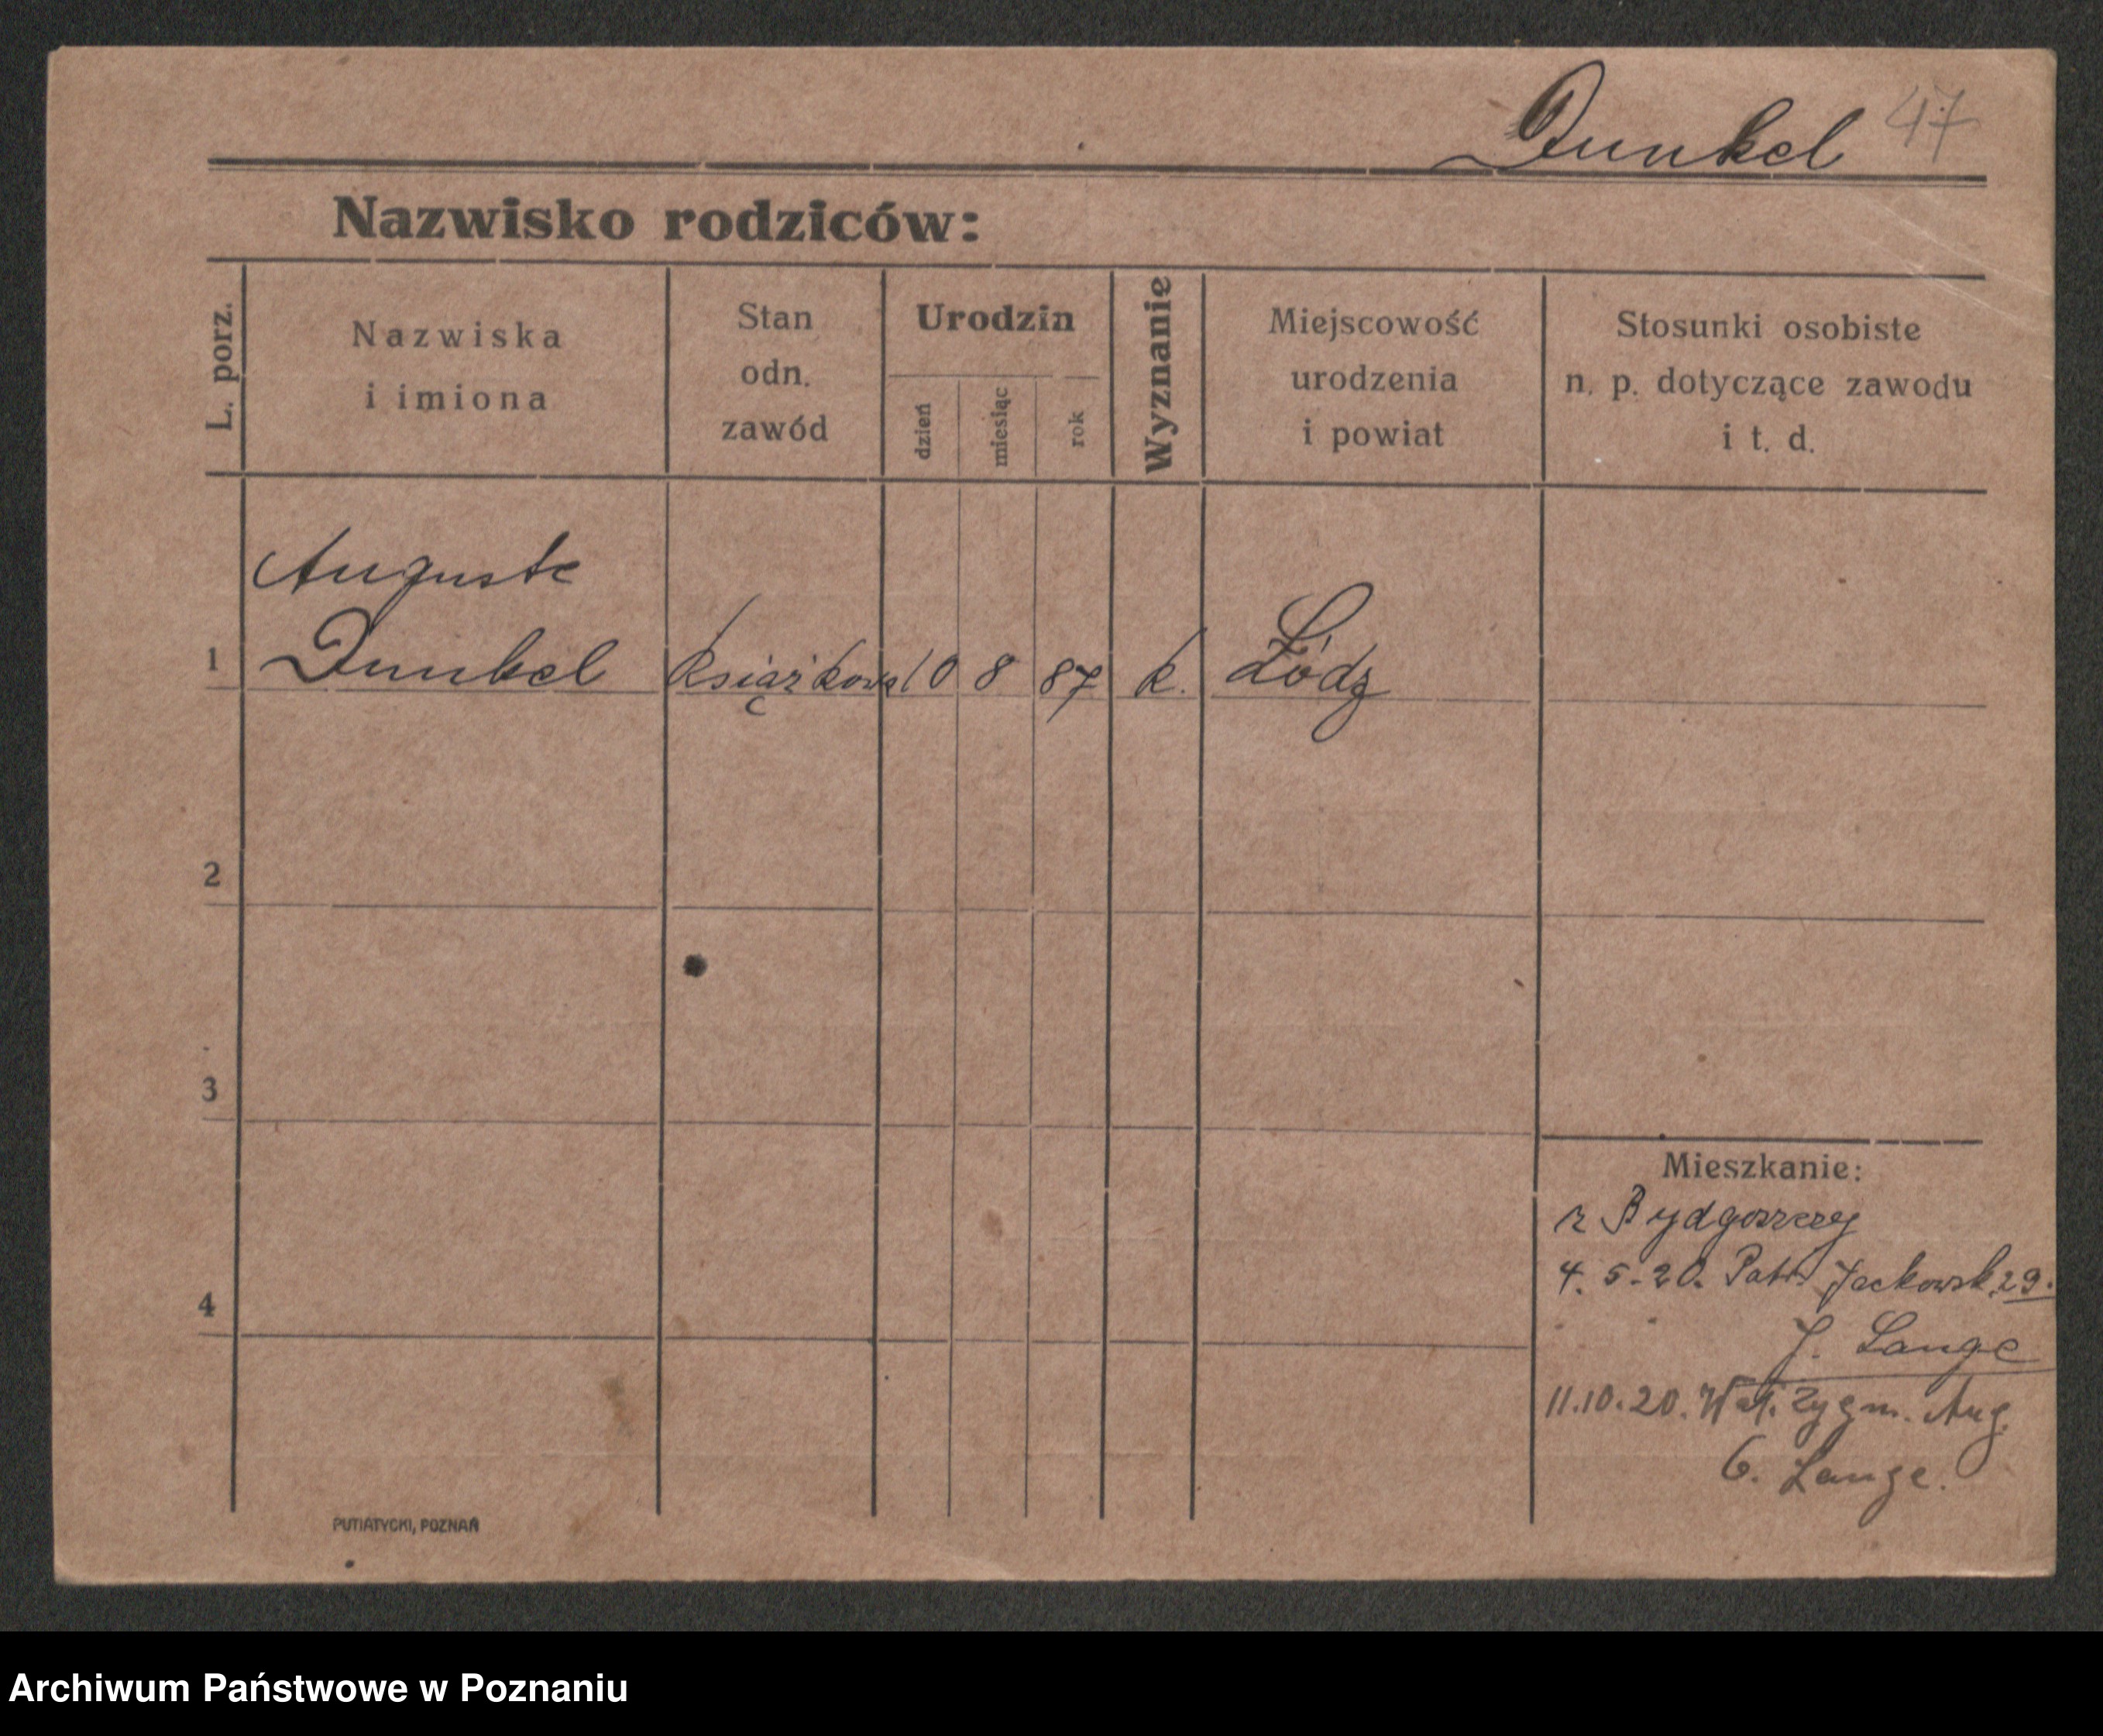 Dunkel 47
Nazwisko rodziców:
L. porz.
Nazwiska
i imiona
Stan
odn.
zawód
Urodzin
dzień
miesiąc
rok
Wyznanie
Miejscowość
urodzenia
i powiat
Stosunki osobiste
n. p. dotyczące zawodu
i t. d.
Auguste
1 Dunkel książkowa 10 8 87 k. Łódz
2
3
4
Mieszkanie:
z Bydgoszczy
4. 5. 20. Patr. Jackowsk. 29.
J. Lange
11.10.20. Wał. Zygm. Aug.
6. Lange.
PUTIATYCKI, POZNAŃ
Archiwum Państwowe w Poznaniu